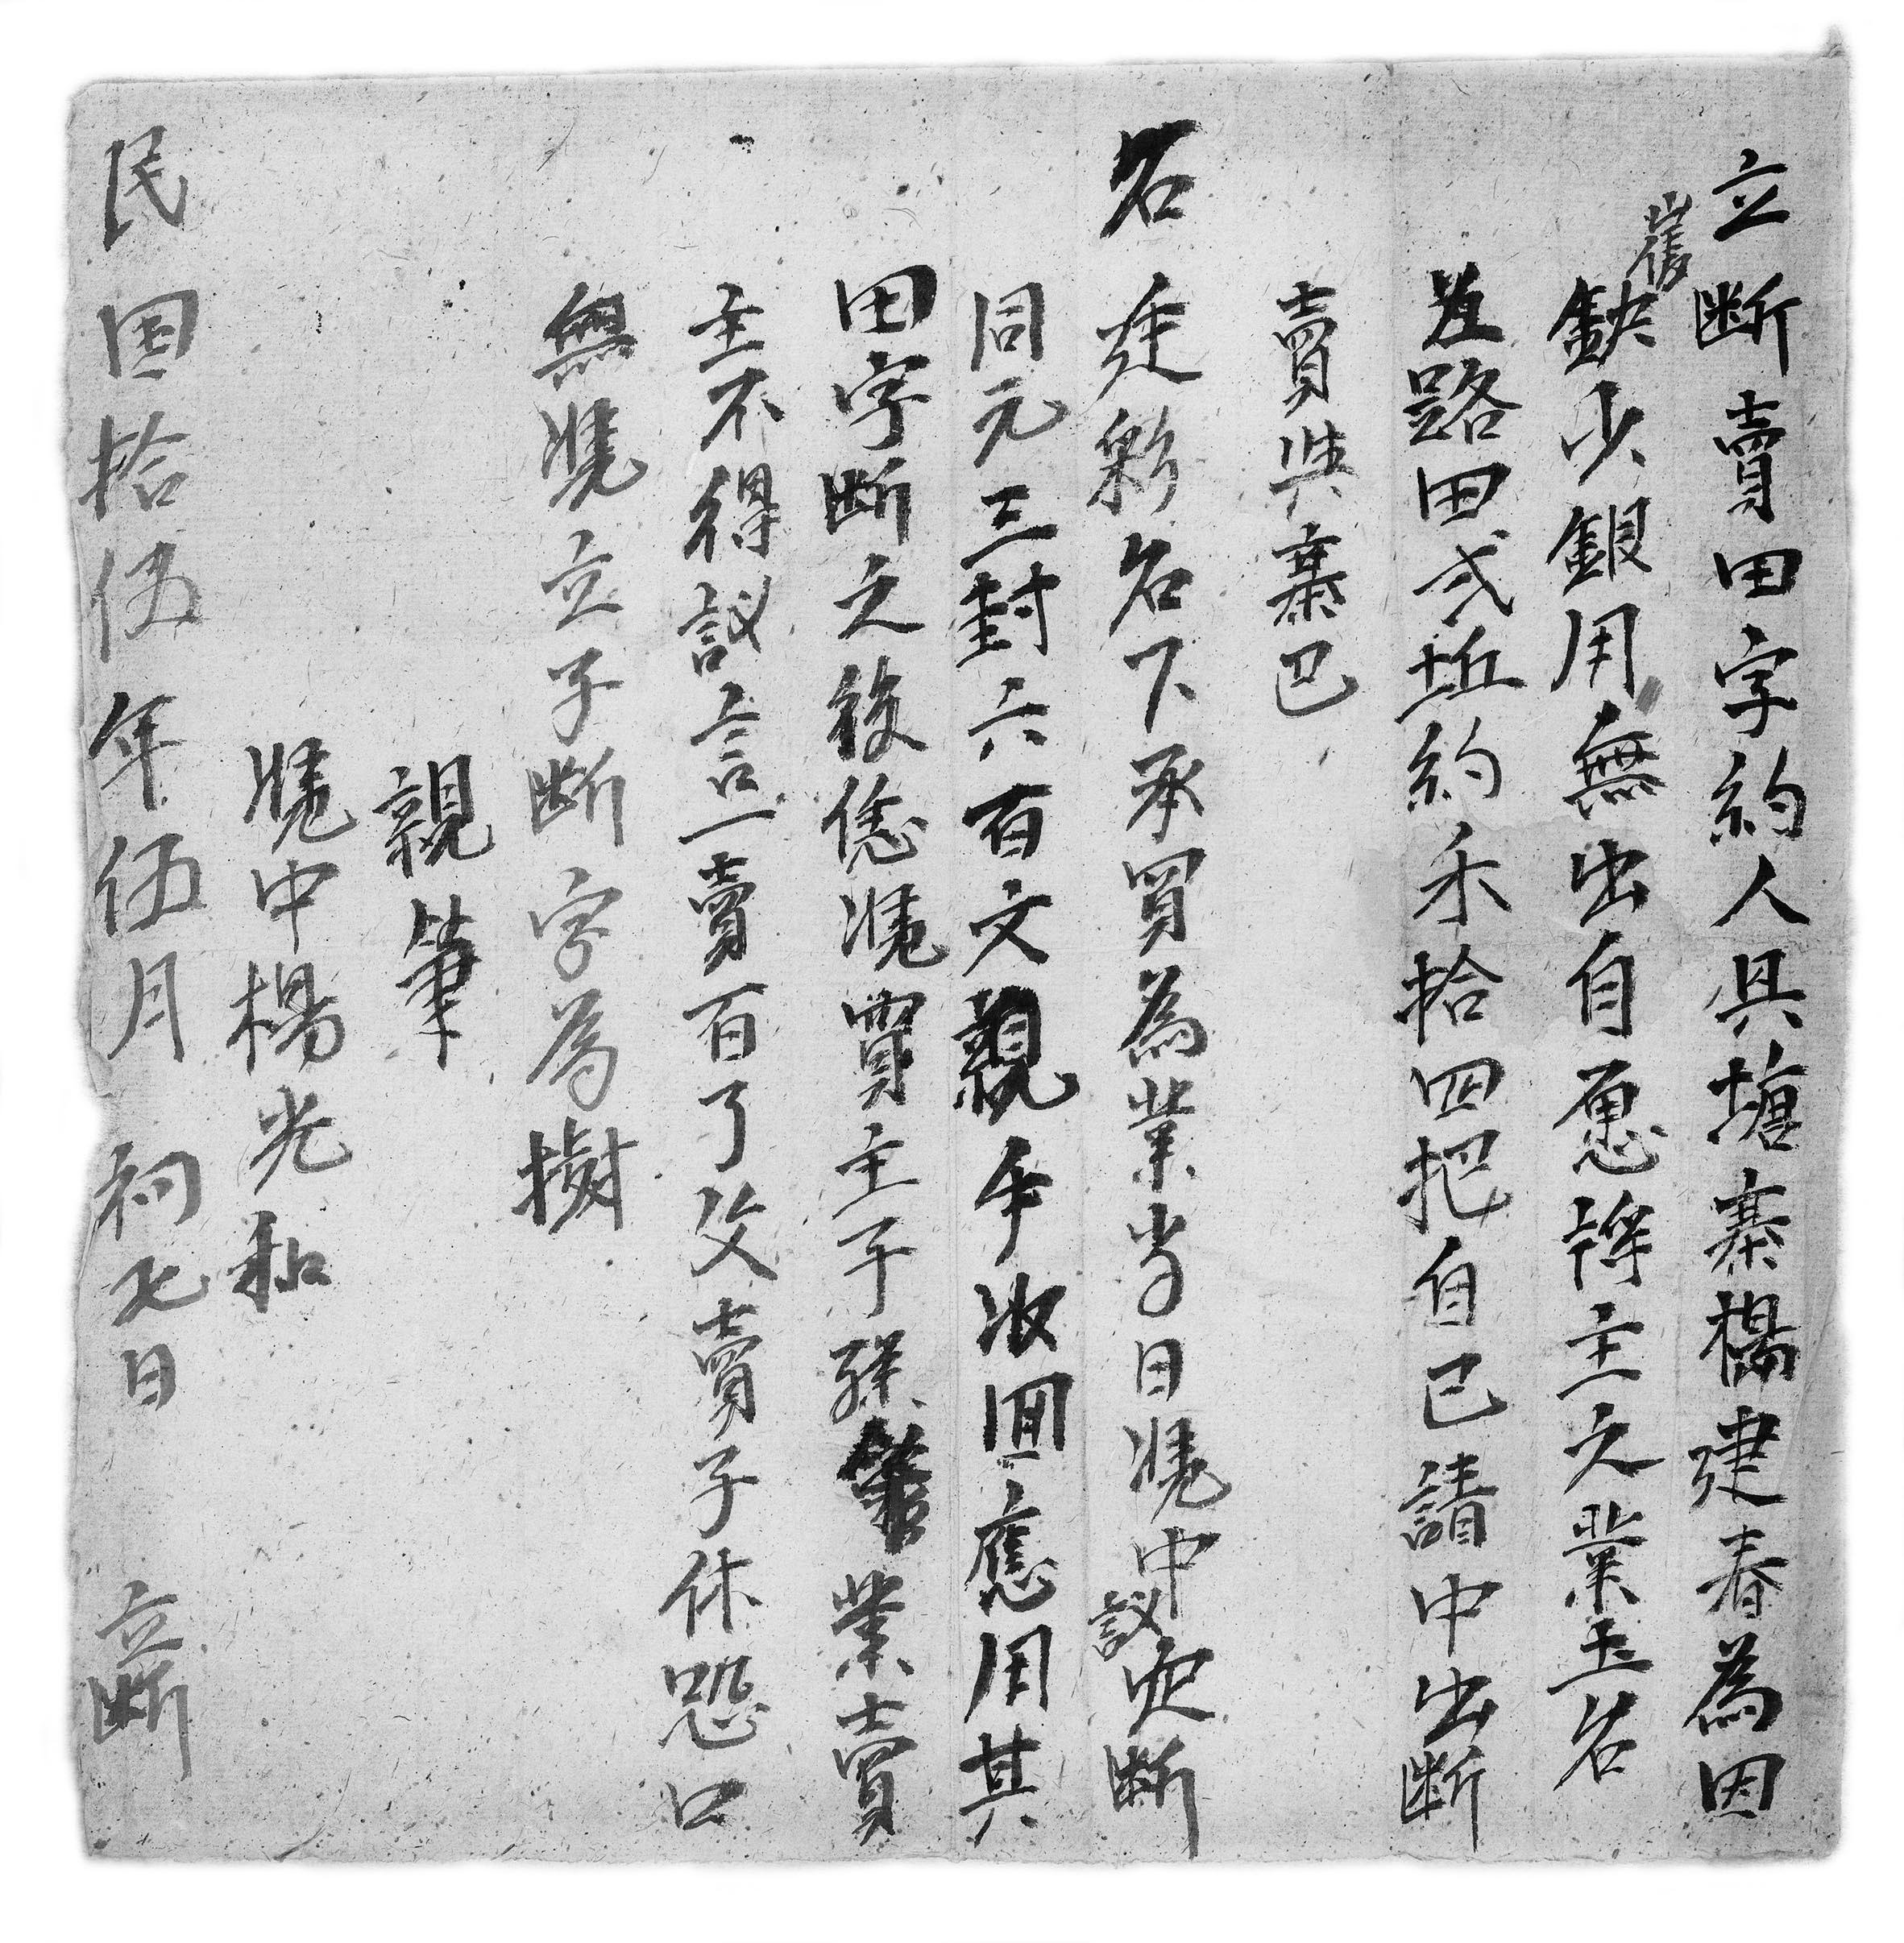 立断賣田字約人具塘寨楊建春為因
舊
缺少銀用無出自愿將主之業土名
直路田弍坵約禾拾四把自已請中出断
賣與寨巴
名廷彩名下承買為業當日凴中議定断
同元三封六百文親手汝囬應用其
田字断之後憑凴買主子孫管業賣
主不得議言一賣百了父賣子休恐口
無凴立子断字為樹
親筆
凴中楊光和
民国拾伍年伍月初七日 立断